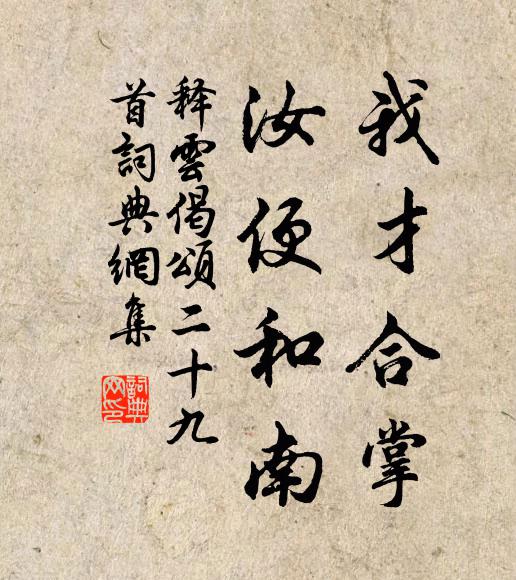 我才合掌
汝便和南
释雲偈頌二十九
首詞典網集
詞典
网印